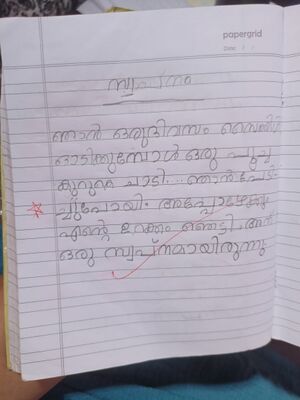 papergrid
Date: / /
സ്വപ്നം
ഞാൻ ഒരുദിവസം സൈക്കിൾ
ഓടിക്കുമ്പോൾ ഒരു പൂച്ച
കുറുകെ ചാടി.... ഞാൻ പേടി
ച്ചുപോയി. അപ്പോഴേക്കും
എന്റെ ഉറക്കം ഞെട്ടി, അത്
ഒരു സ്വപ്നമായിരുന്നു